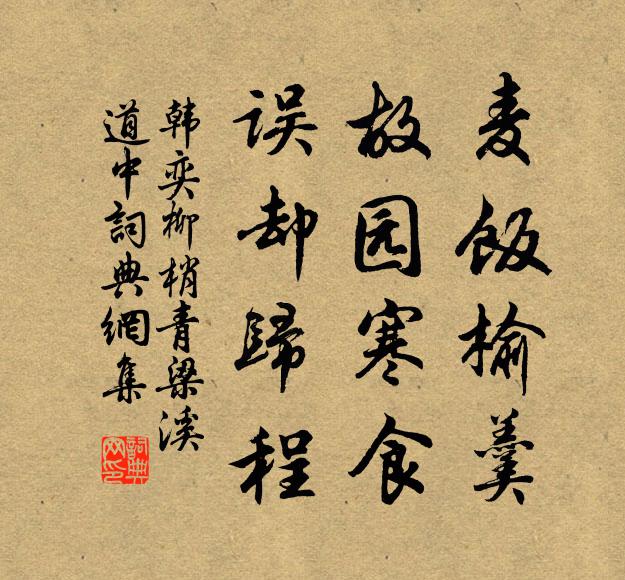 麦飯榆羹
故园寒食
误却歸程
韩奕柳梢青梁溪
道中詞典網集
詞典网印